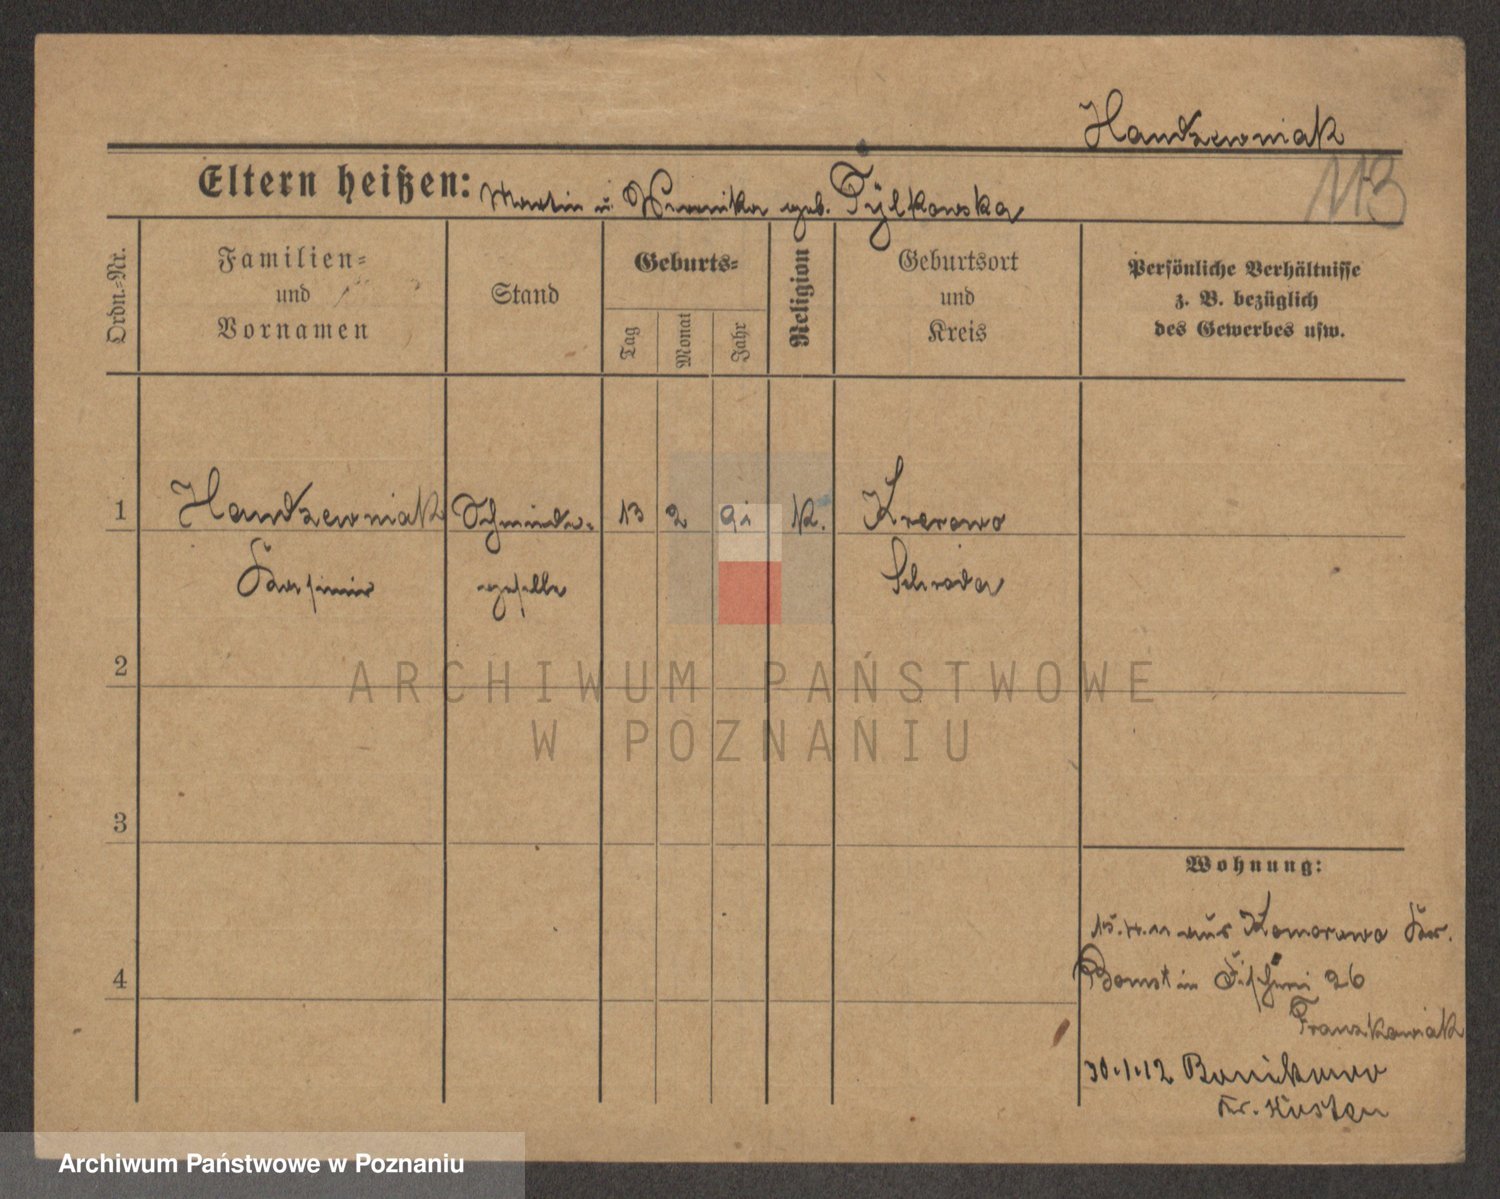 Handzewniak
Eltern heißen: Martin u. Veronika geb. Tylkowska
113
Ordn.=Nr.
Familien=
und
Vornamen
Stand
Geburts=
Tag
Monat
Jahr
Religion
Geburtsort
und
Kreis
Persönliche Verhältnisse
z. B. bezüglich
des Gewerbes usw.
1 Handzewniak Schmiede= 13 2 91 K. Krerowo
Kasimir geselle Schroda
2
ARCHIWUM PAŃSTWOWE
W POZNANIU
3
Wohnung:
15.4.11 aus Komorowo Kr.
4
Bomst in 26
Franzkowiak
30.1.12 Bonikowo
Kr. Kosten
Archiwum Państwowe w Poznaniu